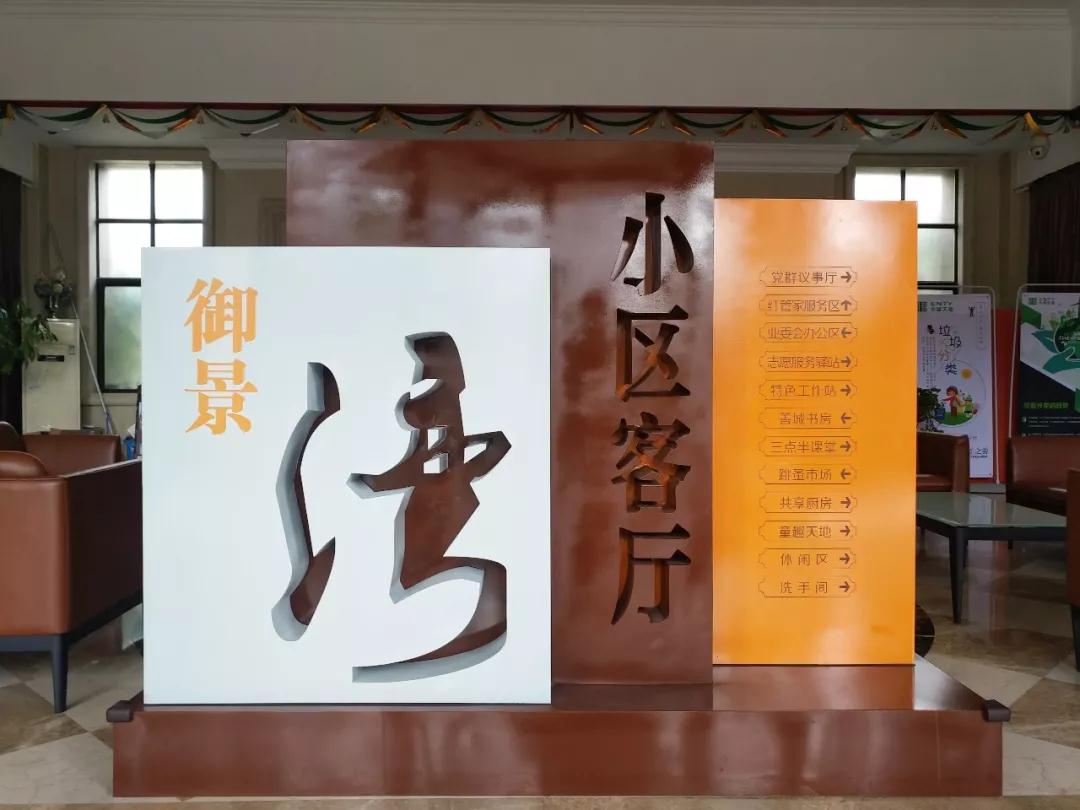 御景
湾
小区客厅
党群议事厅→
红管家服务区↑
业委会办公区←
志愿服务驿站→
特色工作站→
善城书房←
三点半课堂→
跳蚤市场←
共享厨房→
童趣天地→
休闲区→
洗手间→
ENTY
垃圾
分类